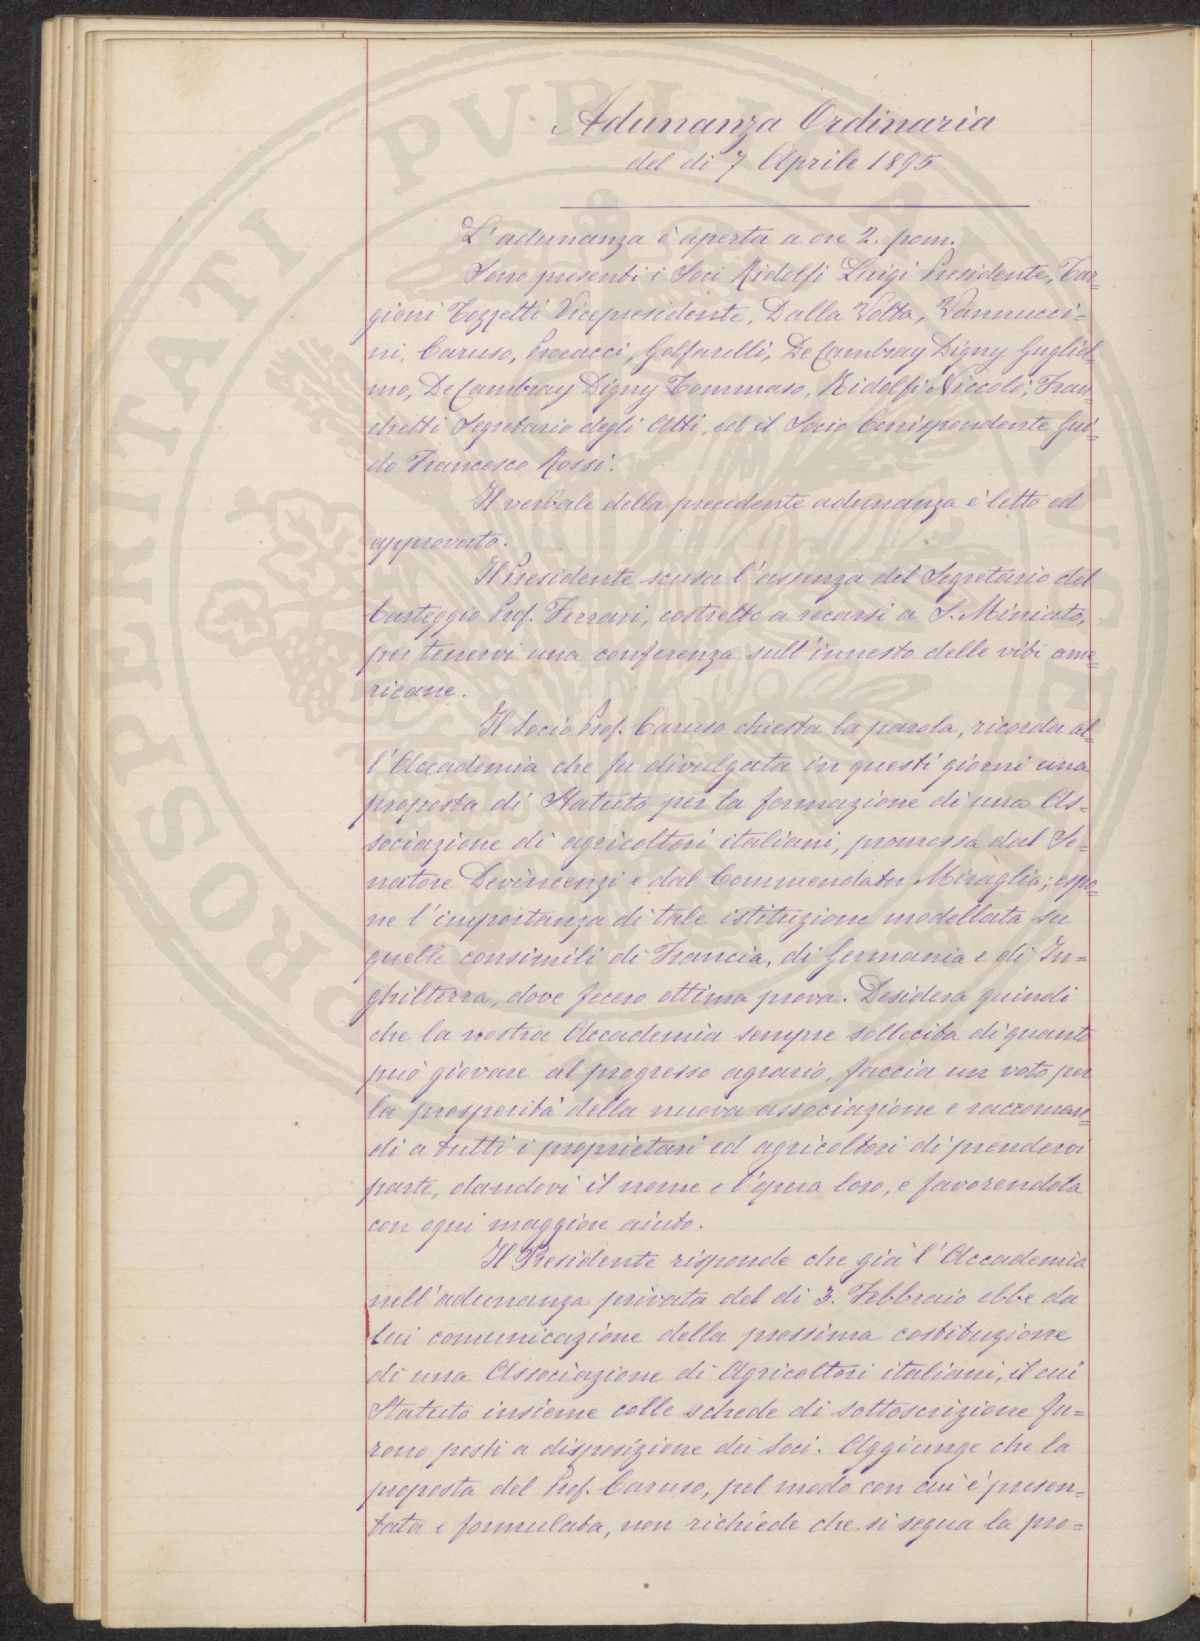 Adunanza Ordinaria
del dì 7 Aprile 1895
L'adunanza è aperta a ore 2. pom.
Sono presenti i Soci Ridolfi Luigi Presidente, Tar=
gioni Tozzetti Vicepresidente, Dalla Volta, Vannucci=
ni, Caruso, Procacci, Golfarelli, De Cambray Digny Gugliel=
mo, De Cambray Digny Tommaso, Ridolfi Niccolò, Fran=
chetti Segretario degli Atti, ed il Socio Corrispondente Gui=
do Francesco Rossi.
Il verbale della precedente adunanza è letto ed
approvato.
Il Presidente scusa l'assenza del Segretario del
Carteggio Prof. Ferrari, costretto a recarsi a S. Miniato,
per tenervi una conferenza sull'innesto delle viti ame=
ricane.
Il Socio Prof. Caruso chiesta la parola, ricorda al=
l'Accademia che fu divulgata in questi giorni una
proposta di Statuto per la formazione di una As=
sociazione di agricoltori italiani, promossa dal Se=
natore Devincenzi e dal Commendator Miraglia; espo=
ne l'importanza di tale istituzione modellata su
quelle consimili di Francia, di Germania e di In=
ghilterra, dove fecero ottima prova. Desidera quindi
che la nostra Accademia sempre sollecita di quanto
può giovare al progresso agrario, faccia un voto per
la prosperità della nuova associazione e raccoman=
di a tutti i proprietari ed agricoltori di prendervi
parte, dandovi il nome e l'opera loro, e favorendola
con ogni maggiore aiuto.
Il Presidente risponde che già l'Accademia
nell'adunanza privata del dì 3. Febbraio ebbe da
lui comunicazione della prossima costituzione
di una Associazione di Agricoltori italiani, il cui
Statuto insieme colle schede di sottoscrizione fu=
rono posti a disposizione dei Soci. Aggiunge che la
proposta del Prof. Caruso, pel modo con cui è presen=
tata e formulata, non richiede che si segua la pro=
PROSPERITATI PVBLICAE AVGENDAE